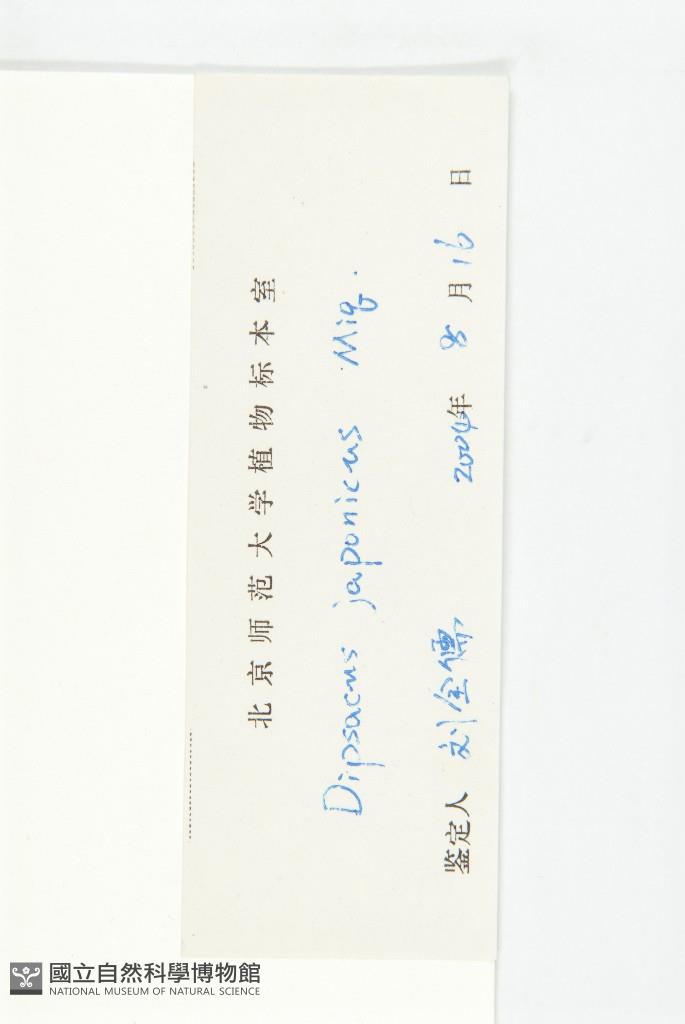 北京师范大学植物标本室
Dipsacus japonicus Miq.
鉴定人 刘全儒 2004年 8 月 16 日
國立自然科學博物館
NATIONAL MUSEUM OF NATURAL SCIENCE